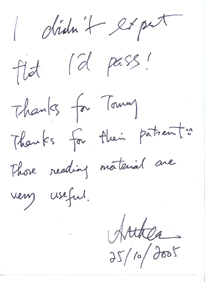 I didn't expect
that I'd pass!
Thanks for Tommy
Thanks for their patient
Those reading material are
very useful.
25/10/2005